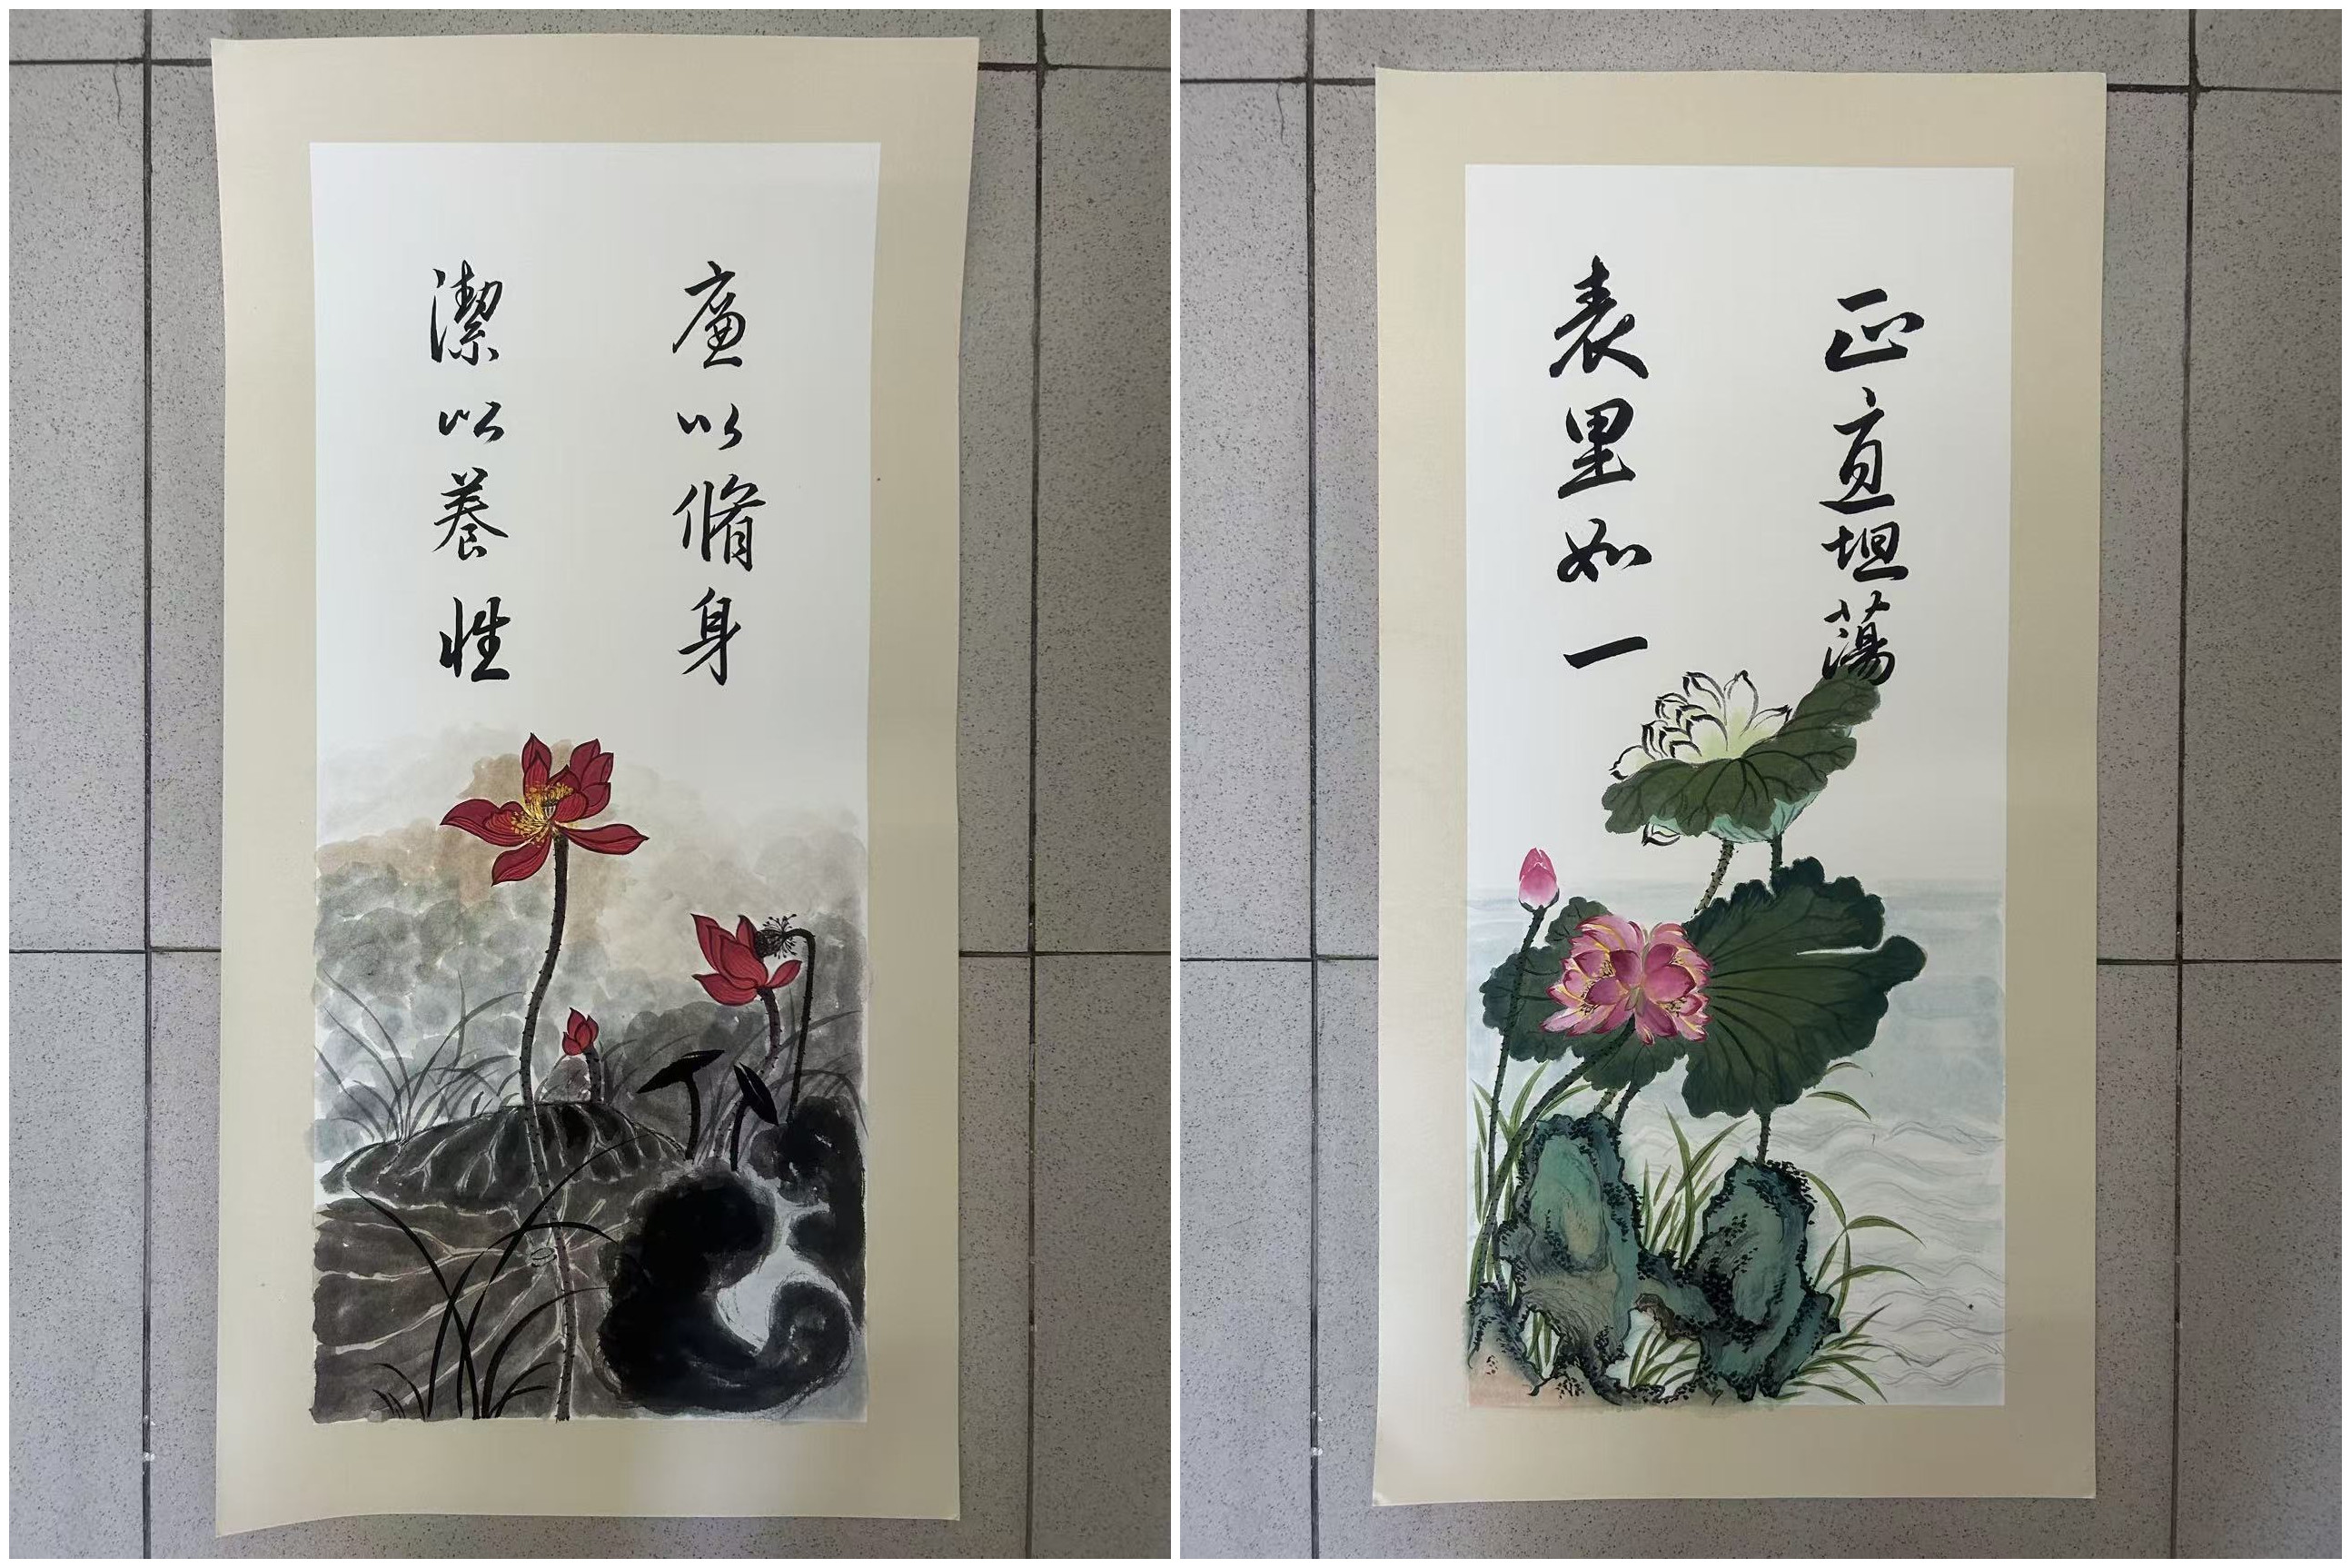 廉以脩身
潔以養性
正直坦蕩
表里如一